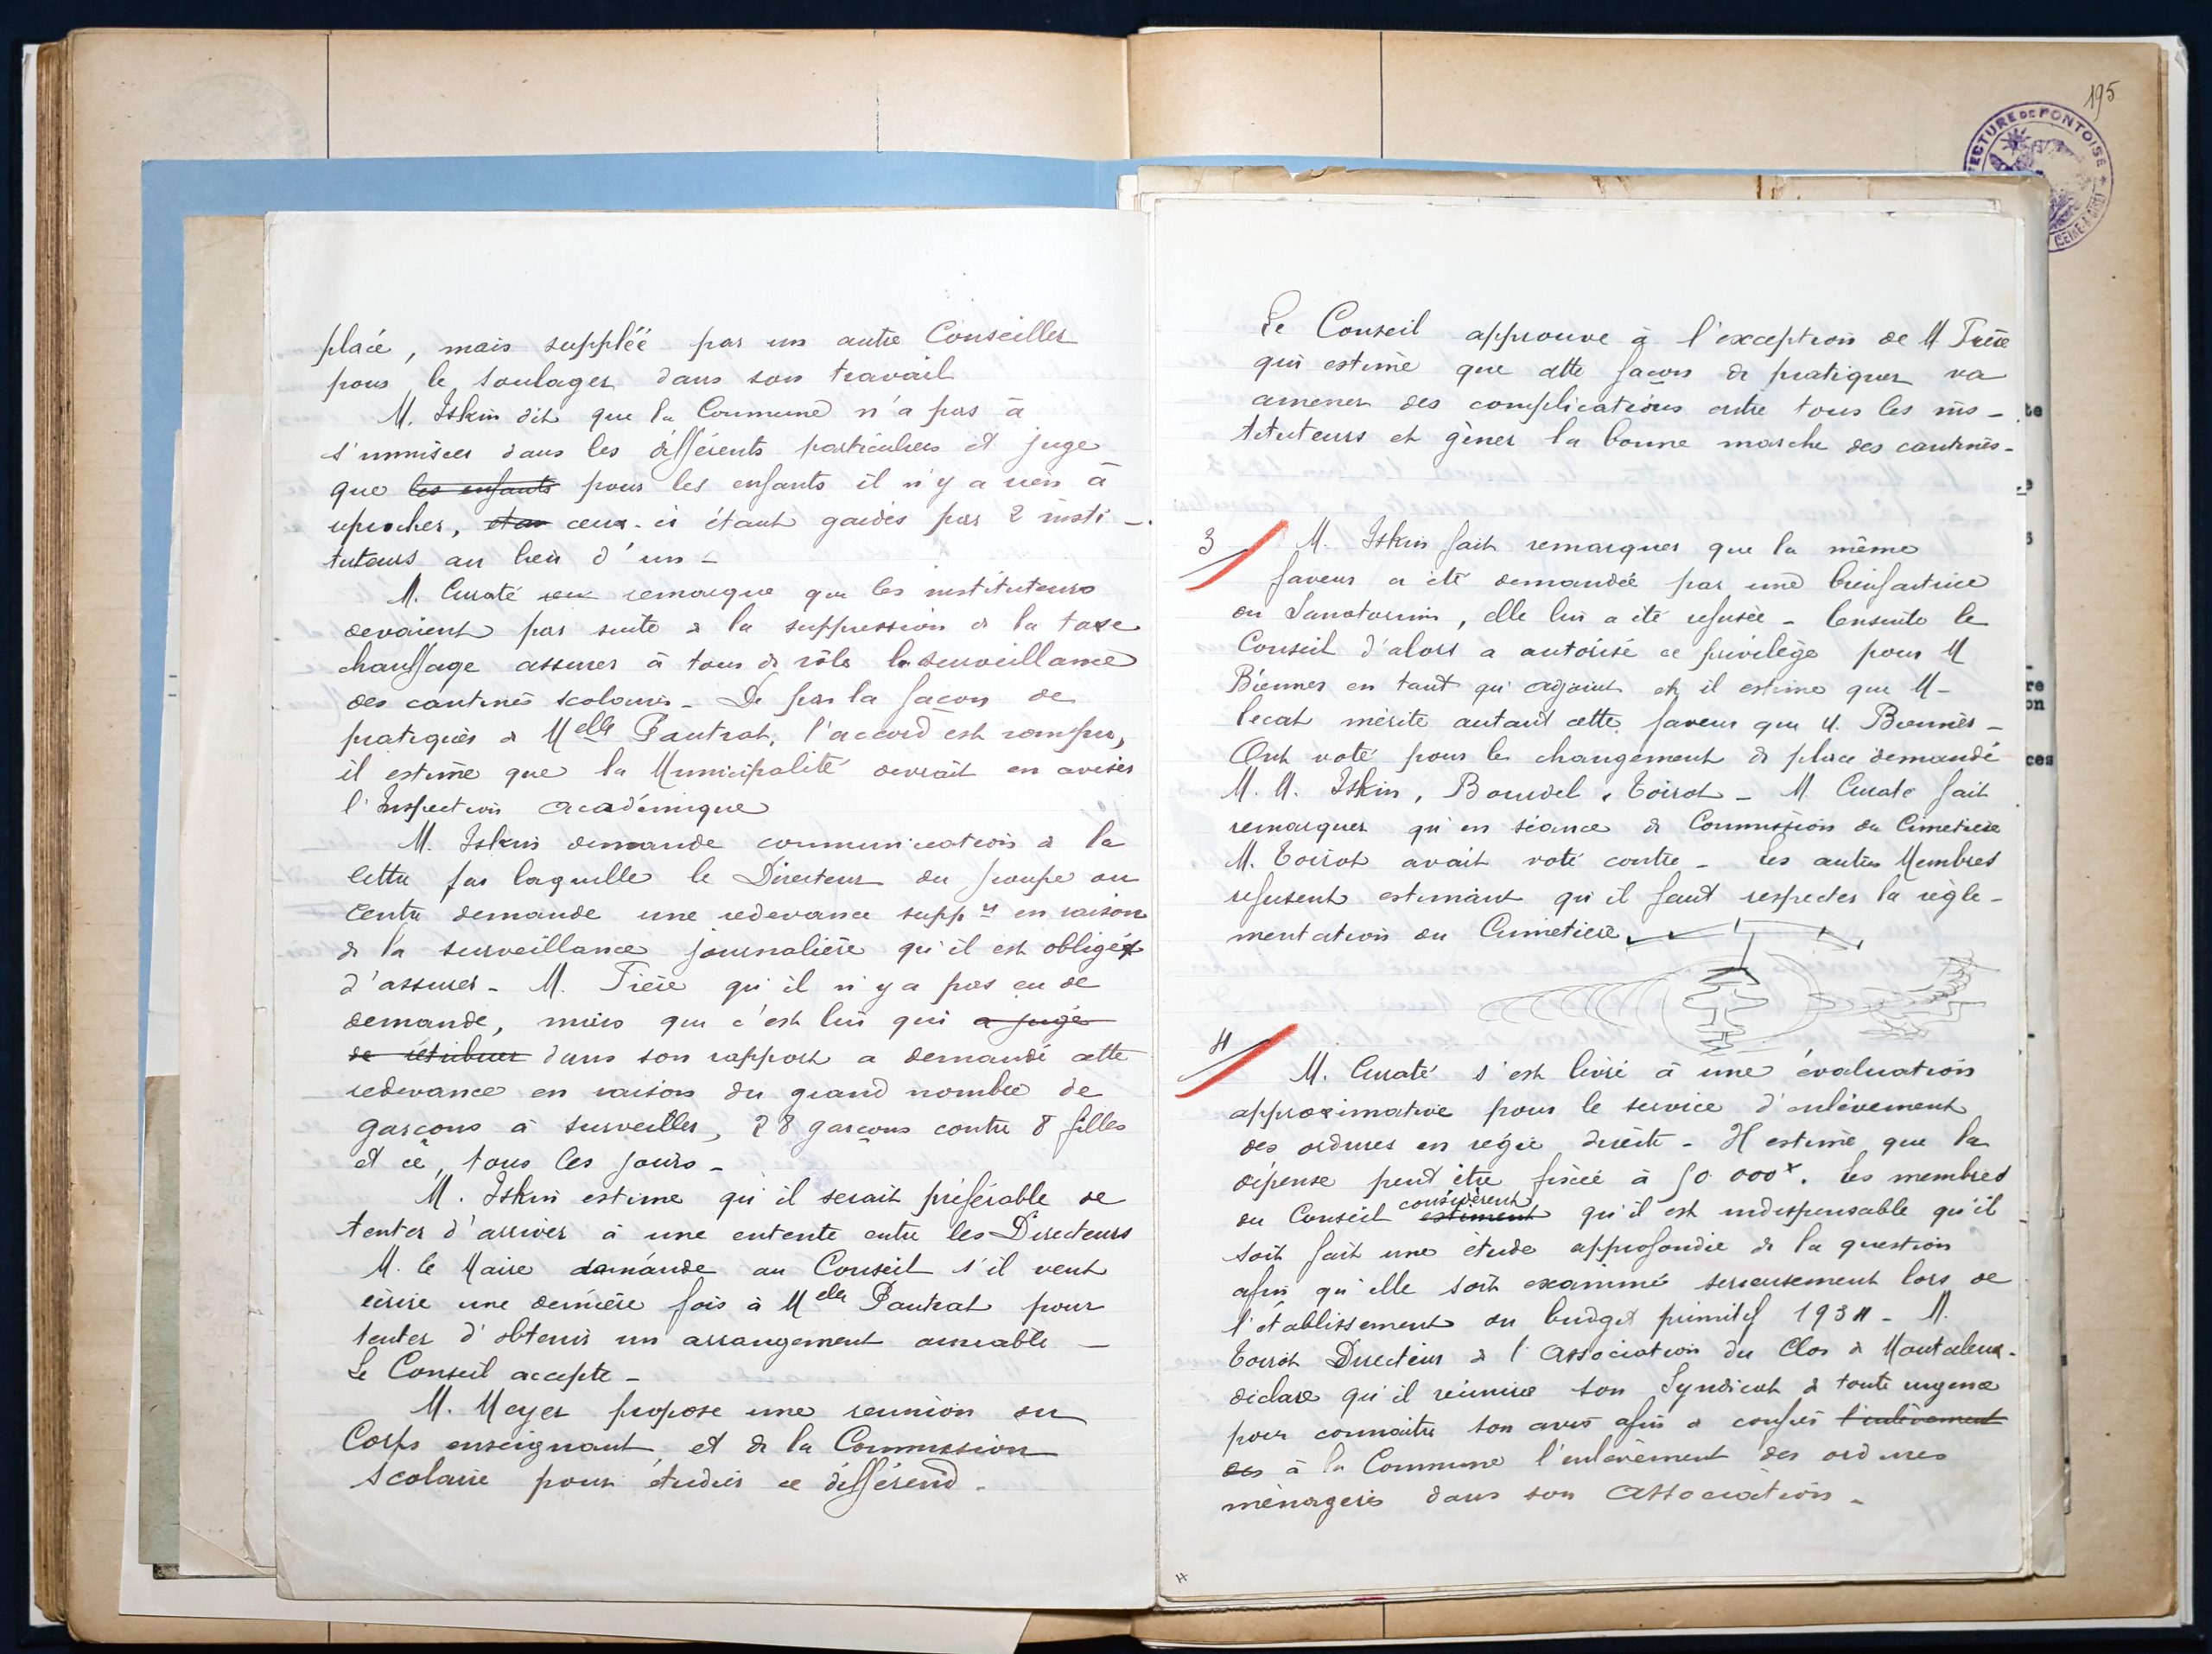 placé, mais suppléé par un autre Conseiller
pour le soulager dans son travail
M. Iskin dit que la Commune n'a pas à
s'immiscer dans les différents particuliers et juge
que les enfants pour les enfants il n'y a rien à
reprocher, ceux-ci étant gardés par 2 insti-
tuteurs au lieu d'un -
M. Curaté remarque que les instituteurs
devaient par suite de la suppression de la taxe
chauffage assurer à tour de rôle la surveillance
des cantines scolaires - De par la façon de
pratiquer de Melle Pautrat, l'accord est rompu,
il estime que la Municipalité devrait en aviser
l'Inspection Académique
M. Iskin demande communication de la
lettre par laquelle le Directeur du Groupe du
Centre demande une redevance suppre en raison
de la surveillance journalière qu'il est obligé
d'assurer - M. Frère qu'il n'y a pas eu de
demande, mais que c'est lui qui a jugé
de rétribuer dans son rapport a demandé cette
redevance en raison du grand nombre de
garçons à surveiller, 28 garçons contre 8 filles
et ce, tous les jours -
M. Iskin estime qu'il serait préférable de
tenter d'arriver à une entente entre les Directeurs
M. le Maire demande au Conseil s'il veut
écrire une dernière fois à Melle Pautrat pour
tenter d'obtenir un arrangement amiable -
Le Conseil accepte -
M. Meyer propose une réunion du
Corps enseignant et de la Commission
scolaire pour étudier ce différend -
195
ECTURE DE PONTOISE
SEINE-&-OISE
Le Conseil approuve à l'exception de M Frère
qui estime que cette façon de pratiquer va
amener des complications entre tous les ins-
tituteurs et gêner la bonne marche des cantines -
3 M. Iskin fait remarquer que la même
faveur a été demandée par une bienfaitrice
du Sanatorium, elle lui a été refusée - Censuite le
Conseil d'alors a autorisé ce privilège pour M
Biennes en tant qu'adjoint et il estime que M -
Lecat mérite autant cette faveur que M. Biennès -
Ont voté pour le changement de place demandé
M. M. Iskin, Bourdel, Toirot - M. Curaté fait
remarquer qu'en séance de Commission du Cimetière
M. Toirot avait voté contre - Les autres Membres
refusent estimant qu'il faut respecter la règle-
mentation du Cimetière
4 M. Curaté s'est livré à une évaluation
approximative pour le service d'enlèvement
des ordures en régie directe - Il estime que la
dépense peut être fixée à 50 000 f. Les membres
du Conseil estiment considèrent qu'il est indispensable qu'il
soit fait une étude approfondie de la question
afin qu'elle soit examiné sérieusement lors de
l'établissement du budget primitif 1934 - M.
Toirot Directeur de l'Association du Clos de Montaleux -
déclare qu'il réunira son Syndicat de toute urgence
pour connaître son avis afin de confier l'enlèvement
des à la Commune l'enlèvement des ordures
ménagères dans son Association -
4
te
re
on
ces